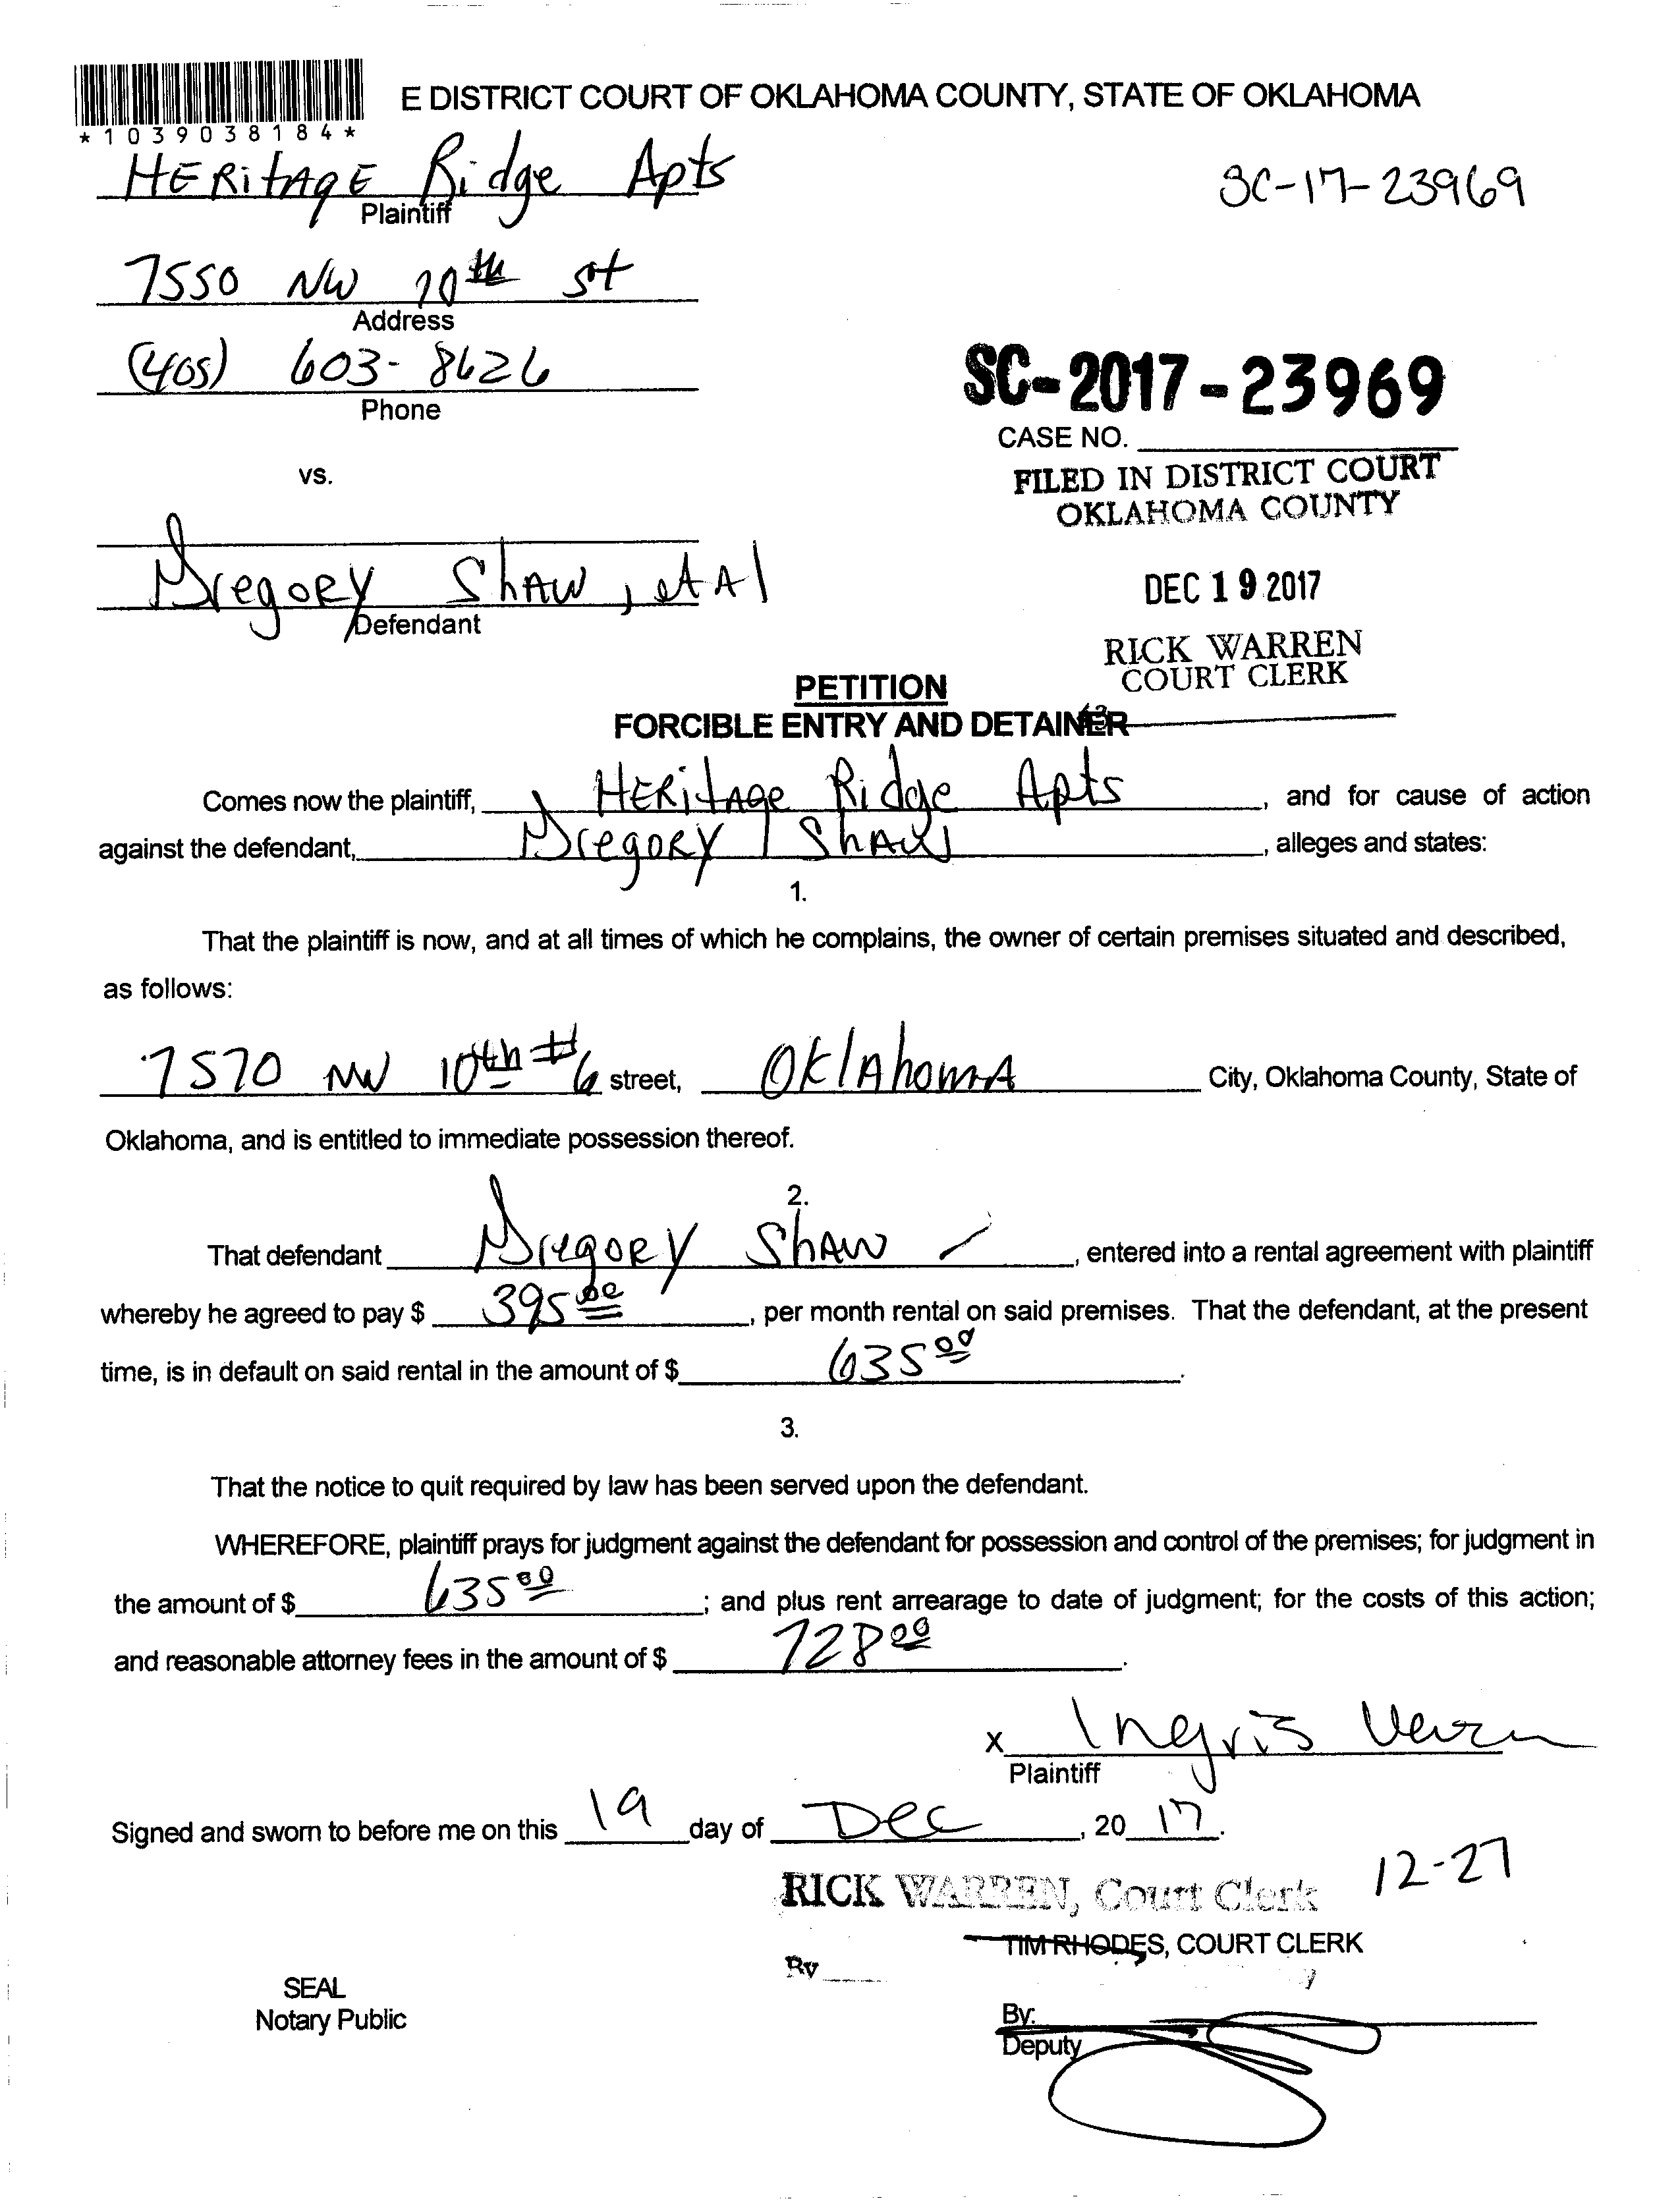 E DISTRICT COURT OF OKLAHOMA COUNTY, STATE OF OKLAHOMA
*1039038184*
HERitAgE Ridge Apts
Plaintiff
SC-17-23969
7550 NW 10th St
Address
(405) 603-8626
Phone
SC-2017-23969
CASE NO.
FILED IN DISTRICT COURT
OKLAHOMA COUNTY
vs.
DEC 19 2017
Gregory Shaw, et Al
Defendant
RICK WARREN
COURT CLERK
PETITION
FORCIBLE ENTRY AND DETAINER
Comes now the plaintiff, HERitAge Ridge Apts, and for cause of action
against the defendant, Gregory Shaw, alleges and states:
1.
That the plaintiff is now, and at all times of which he complains, the owner of certain premises situated and described,
as follows:
7570 NW 10th #6 street, OklAhomA City, Oklahoma County, State of
Oklahoma, and is entitled to immediate possession thereof.
2.
That defendant Gregory Shaw, entered into a rental agreement with plaintiff
whereby he agreed to pay $ 395 00, per month rental on said premises. That the defendant, at the present
time, is in default on said rental in the amount of $ 635 00.
3.
That the notice to quit required by law has been served upon the defendant.
WHEREFORE, plaintiff prays for judgment against the defendant for possession and control of the premises; for judgment in
the amount of $ 635 00; and plus rent arrearage to date of judgment; for the costs of this action;
and reasonable attorney fees in the amount of $ 728 00.
x Ingris
Plaintiff
Signed and sworn to before me on this 19 day of Dec, 2017.
12-27
RICK WARREN, Court Clerk
TIM RHODES, COURT CLERK
By
SEAL
Notary Public
By:
Deputy